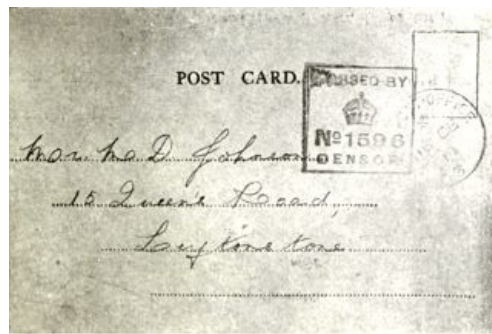 POST CARD.
PASSED BY
No 1596
CENSOR
D Johnson
15 Queen's Road,
Leytonstone